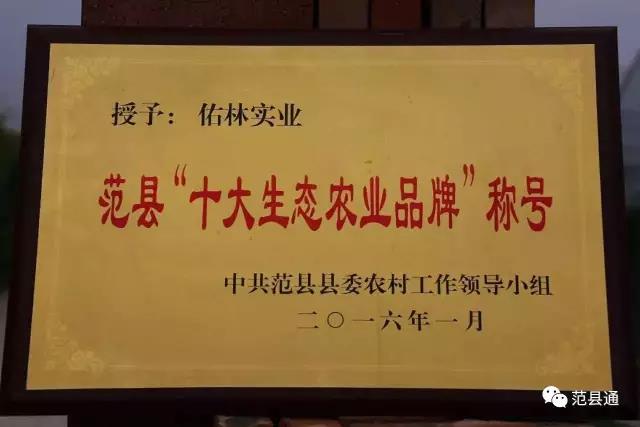 授予：佑林实业
范县“十大生态农业品牌”称号
中共范县县委农村工作领导小组
二〇一六年一月
范县通